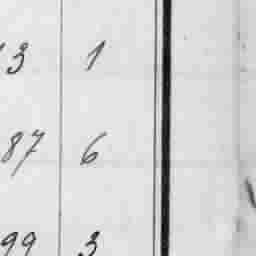 3 1
87 6
99 3